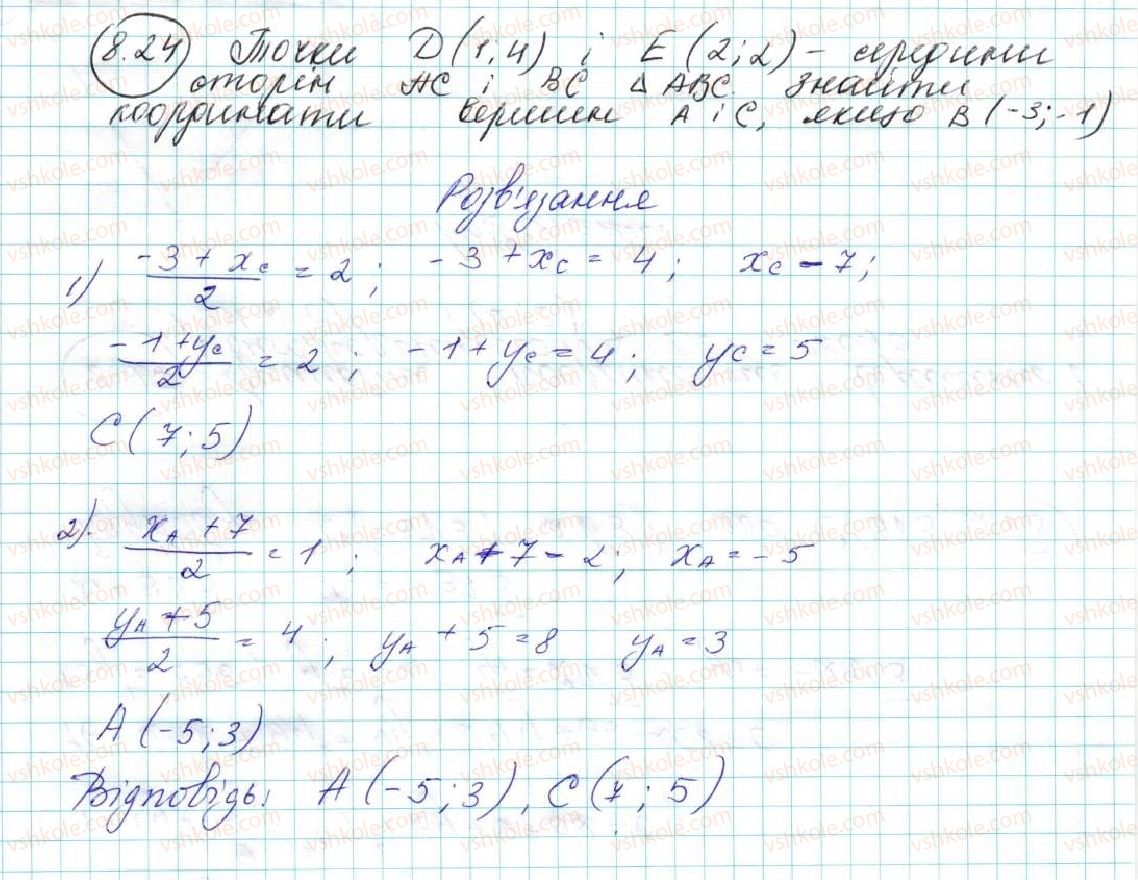 8.24 Точки D(1;4) і E(2;2) - середини
сторін AC і BC Δ ABC. знайти
координати вершин A і C, якщо B(-3;-1)
Розв'язання
1) (-3 + x_C)/2 = 2; -3 + x_C = 4; x_C - 7;
(-1 + y_C)/2 = 2; -1 + y_C = 4; y_C = 5
C(7;5)
2). (x_A + 7)/2 = 1; x_A + 7 - 2; x_A = -5
(y_A + 5)/2 = 4; y_A + 5 = 8 y_A = 3
A(-5;3)
Відповідь: A(-5;3), C(7;5)
vshkole.com